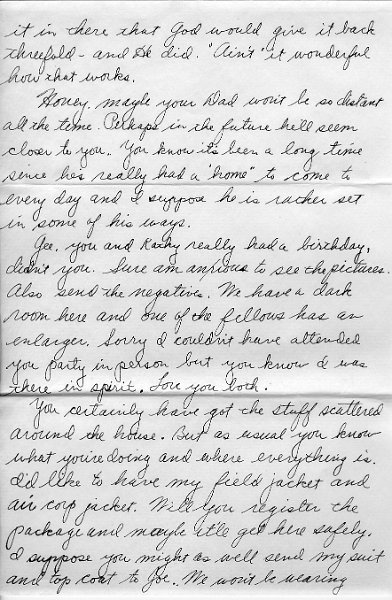 it in there that God would give it back
threefold - and He did. "Ain't" it wonderful
how that works.
Honey, maybe your Dad won't be so distant
all the time. Perhaps in the future he'll seem
closer to you. You know it's been a long time
since he's really had a "home" to come to
every day and I suppose he is rather set
in some of his ways.
Gee, you and Kathy really had a birthday,
didn't you. Sure am anxious to see the pictures.
Also send the negatives. We have a dark
room here and one of the fellows has an
enlarger. Sorry I couldn't have attended
you party in person but you know I was
there in spirit. Love you both.
You certainly have got the stuff scattered
around the house. But as usual you know
what you're doing and where everything is.
I'd like to have my field jacket and
air corp jacket. Will you register the
package and maybe it'll get here safely.
I suppose you might as well send my suit
and top coat to Joe. We won't be wearing